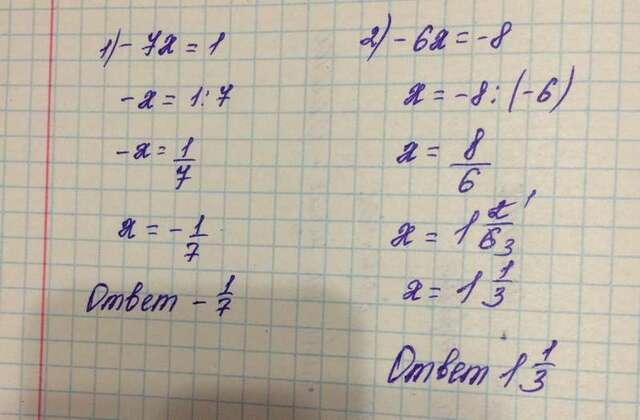 1) -7x = 1
-x = 1:7
-x = 1/7
x = -1/7
Ответ -1/7
2) -6x = -8
x = -8:(-6)
x = 8/6
x = 1 2/6 1 3
x = 1 1/3
Ответ 1 1/3